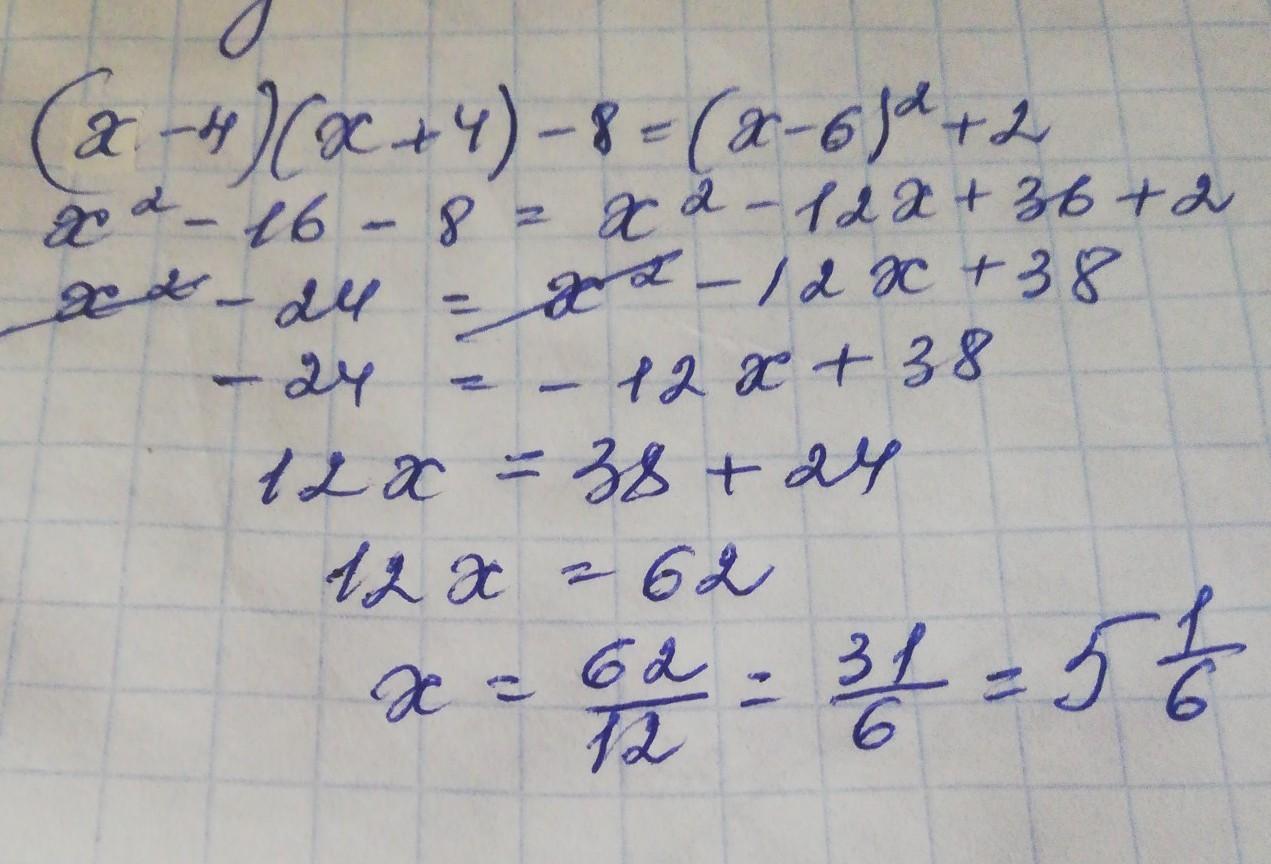 (x-4)(x+4)-8=(x-6)²+2
x²-16-8=x²-12x+36+2
x²-24=x²-12x+38
-24=-12x+38
12x=38+24
12x=62
x=62/12=31/6=5 1/6